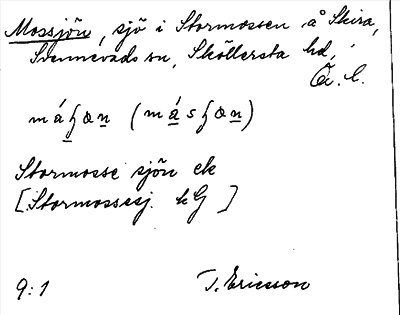 Mossjön, sjö i Stormossen å Skira,
Svennevads sn, Sköllersta hd,
Ö. l.
Stormosse sjön ek
[Stormossesj. kG ]
9:1 T. Ericsson